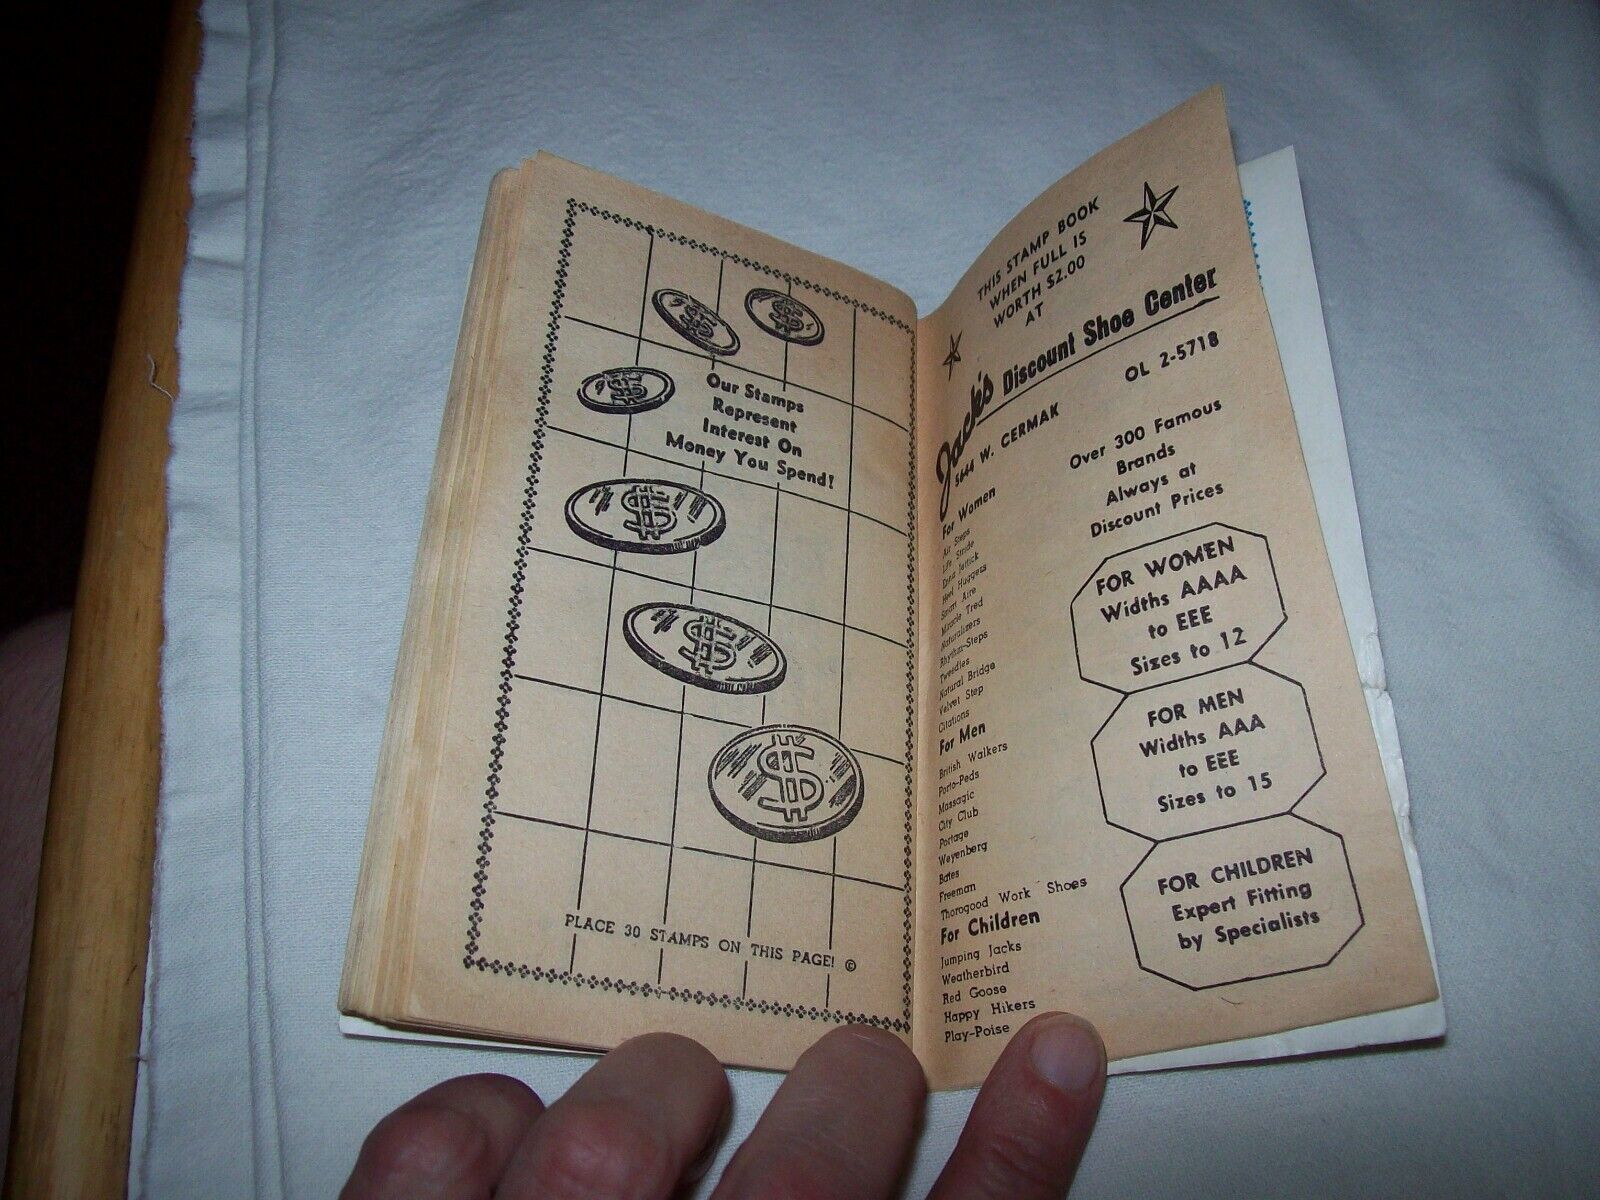 Our Stamps
Represent
Interest On
Money You Spend!
PLACE 30 STAMPS ON THIS PAGE! ©
THIS STAMP BOOK
WHEN FULL IS
WORTH $2.00
AT
Jack's Discount Shoe Center
5644 W. CERMAK
OL 2-5718
Over 300 Famous
Brands
Always at
Discount Prices
For Women
Air Steps
Life Stride
Enna Jettick
Heel Huggers
Spun Aire
Miracle Tred
Naturalizers
Rhythm-Steps
Tweedies
Natural Bridge
Velvet Step
Citations
For Men
British Walkers
Porto-Peds
Massagic
City Club
Portage
Weyenberg
Bates
Freeman
Thorogood Work Shoes
For Children
Jumping Jacks
Weatherbird
Red Goose
Happy Hikers
Play-Poise
FOR WOMEN
Widths AAAA
to EEE
Sizes to 12
FOR MEN
Widths AAA
to EEE
Sizes to 15
FOR CHILDREN
Expert Fitting
by Specialists